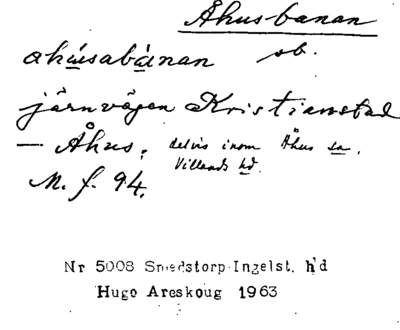 Åhus-banan
åhúsabànan sb.
järnvägen Kristianstad
— Åhus, delvis inom Åhus sn.
Villands hd.
M. f. 94.
Nr 5008 Smedstorp Ingelst. h'd
Hugo Areskoug 1963